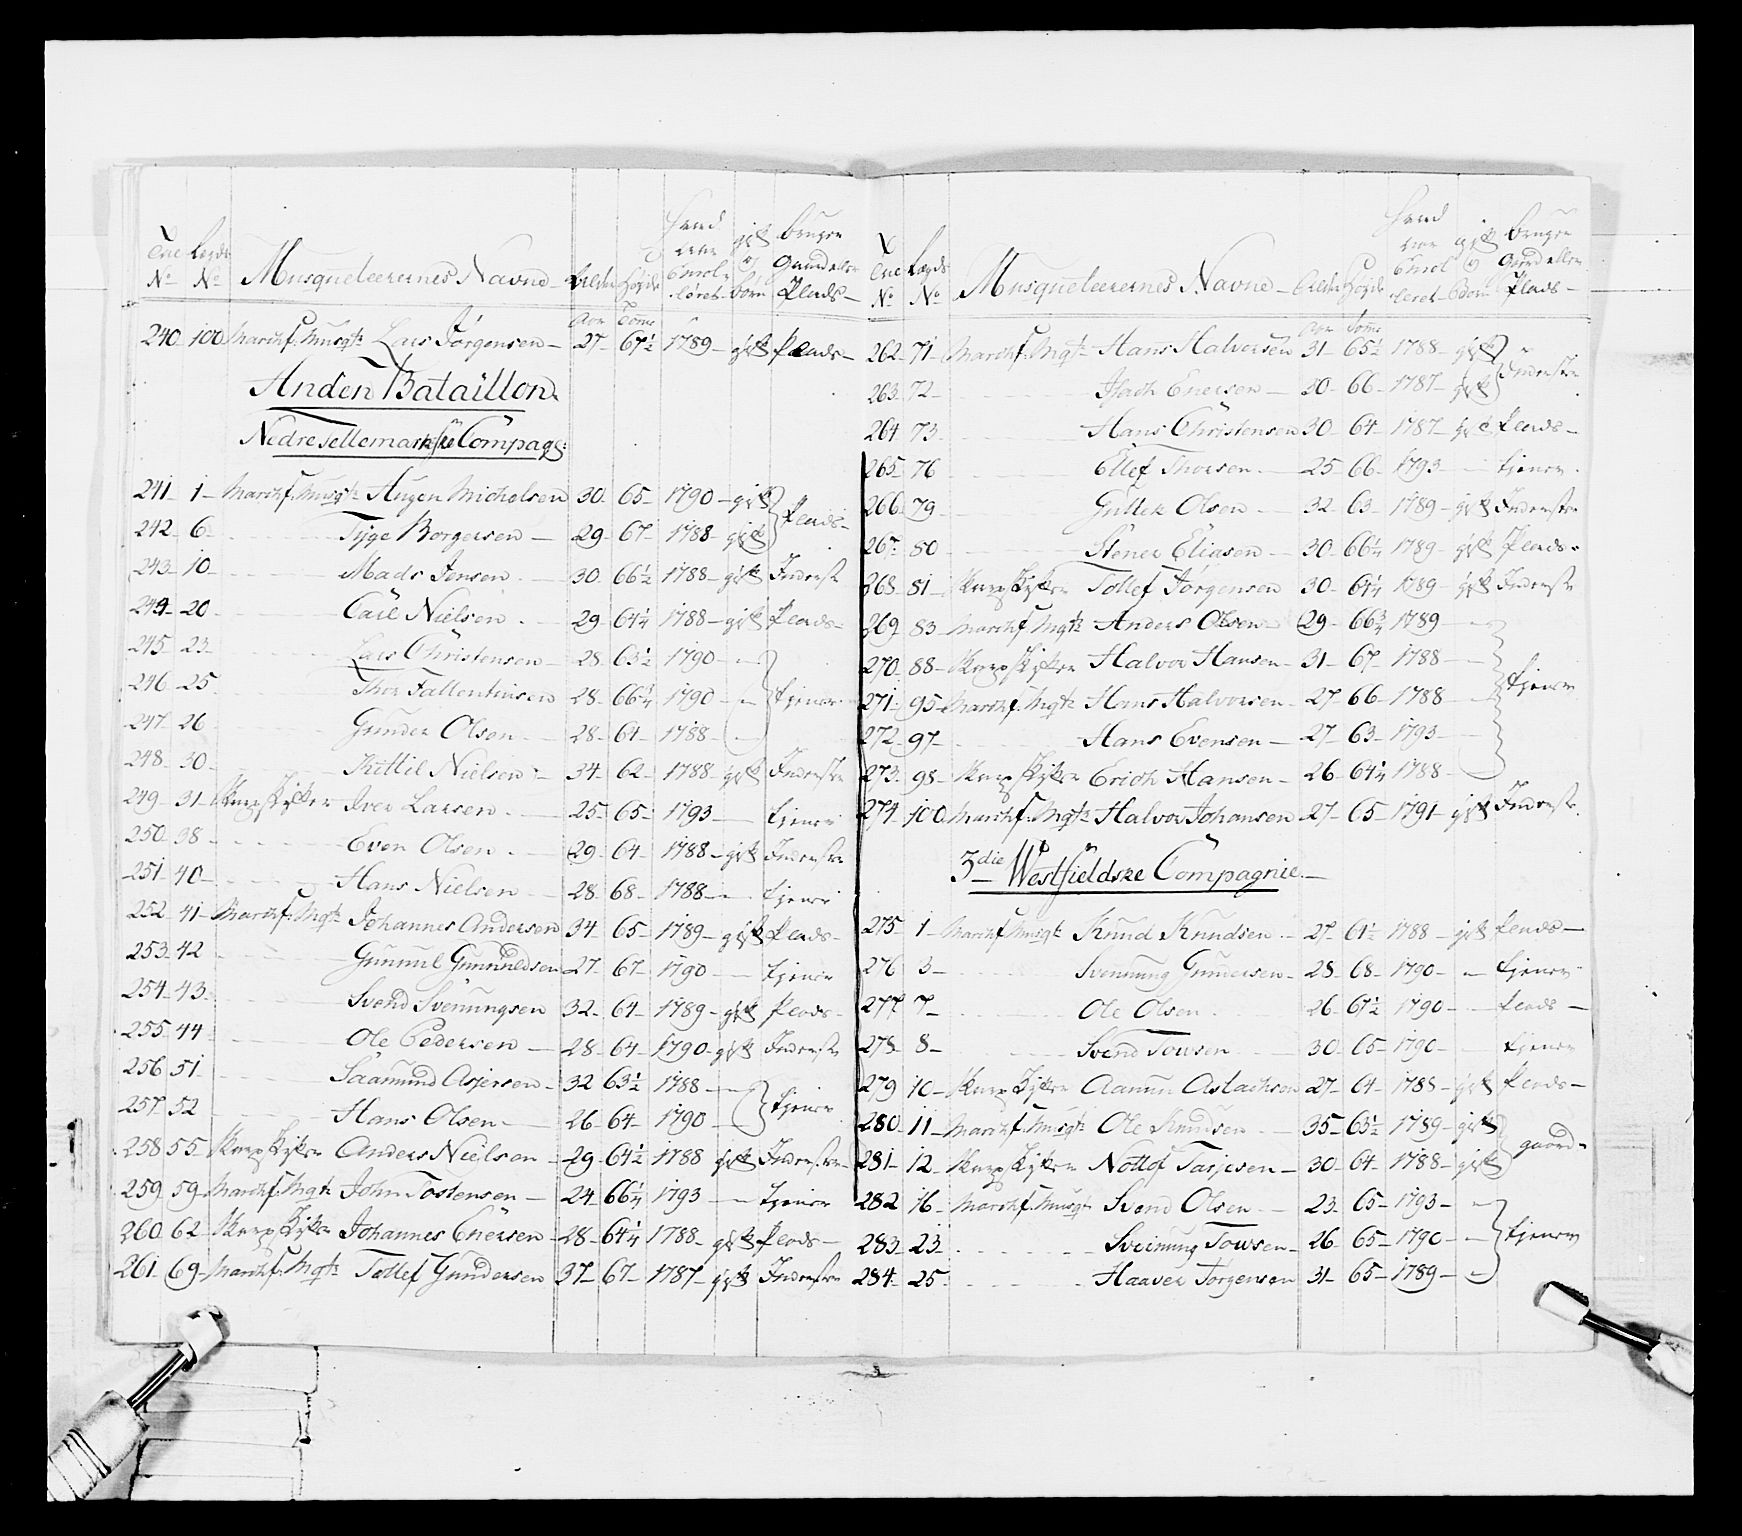 No No Musqueteerernes Navne Alder Høyde gift og børn bruger Gaard eller Plads
Aar Tome
240 100 March f: Musqt: Lars Jørgensen 27 67½ 1789 gift Plads
Anden Bataillon
Nedre Tellemarkske Compag:
241 1 March f: Musqt: Augen Michelsen 30 65 1790 gift
242 6 Tyge Borgersen 29 67 1788 gift Plads
243 10 Mads Jensen 30 66½ 1788 gift Inderste
244 20 Carl Nielsen 29 64¼ 1788 gift Plads
245 23 Lars Christensen 28 63½ 1790
246 25 Thor Fallentinsen 28 66¼ 1790 tjener
247 26 Gunder Olsen 28 61 1788
248 30 Kittil Nielsen 34 62 1788 gift Inderste
249 31 Skarpskytter Iver Larsen 25 65 1793 tjener
250 38 Even Olsen 29 64 1788 gift Inderste
251 40 Hans Nielsen 28 68 1788 tjener
252 41 March f: Mqt: Johannes Andersen 34 65 1789 gift Plads
253 42 Gunuul Gunuuldsen 27 67 1790 tjener
254 43 Svend Svenungsen 32 61 1789 gift Plads
255 44 Ole Pedersen 28 64 1790 gift Inderste
256 51 Saamund Asjersen 32 63½ 1788
257 52 Hans Olsen 26 64 1790 tjener
258 55 Skarpskytter Anders Nielsen 29 64½ 1788 gift Inderste
259 59 March f: Mqt: John Tostensen 24 66¼ 1793 tjener
260 62 Skarpskytter Johannes Enersen 28 64¼ 1788 gift Plads
261 69 March f: Mqt: Tollef Gundersen 37 67 1787 gift Inderste
No No Musqueteerernes Navne Alder Høyde gift og børn bruger Gaard eller Plads
Aar Tome
262 71 March f: Mqt: Hans Halversen 31 65½ 1788 gift
263 72 Isach Enersen 30 66 1787 gift Inderste
264 73 Hans Christensen 30 64 1787 gift Plads
265 76 Ellef Thorsen 25 66 1793 tjener
266 79 Gullek Olsen 32 63 1789 gift Inderste
267 80 Stener Eliasen 30 66¼ 1789 gift Plads
268 81 Skarpskytter Tollef Jørgensen 30 64¼ 1789 gift Inderste
269 83 March f: Mqt: Anders Olsen 29 66¾ 1789
270 88 Skarpskytter Halvor Hansen 31 67 1788
271 95 March f: Mqt: Hans Halvorsen 27 66 1788 tjener
272 97 Hans Evensen 27 63 1793
273 98 Skarpskytter Erich Hansen 26 64¼ 1788
274 100 March f: Mqt: Halvor Johansen 27 65 1791 gift Inderste
3die Westfieldske Compagnie
275 1 March f: Musqt: Knud Knudsen 27 61½ 1788 gift Plads
276 3 Svennung Gunersen 28 68 1790 tjener
277 7 Ole Olsen 26 67½ 1790 Plads
278 8 Svend Towsen 30 65 1790 tjener
279 10 Skarpskytter Aamun Aslachsen 27 64 1788 gift Plads
280 11 March f: Musqt: Ole Knudsen 35 63½ 1789 gift
281 12 Skarpskytter Nottof Tarjesen 30 64 1788 gift gaard
282 16 March f: Musqt: Svend Olsen 23 65 1793
283 23 Sveinung Towsen 26 65 1790 tjener
284 25 Haaver Torgensen 31 65 1789